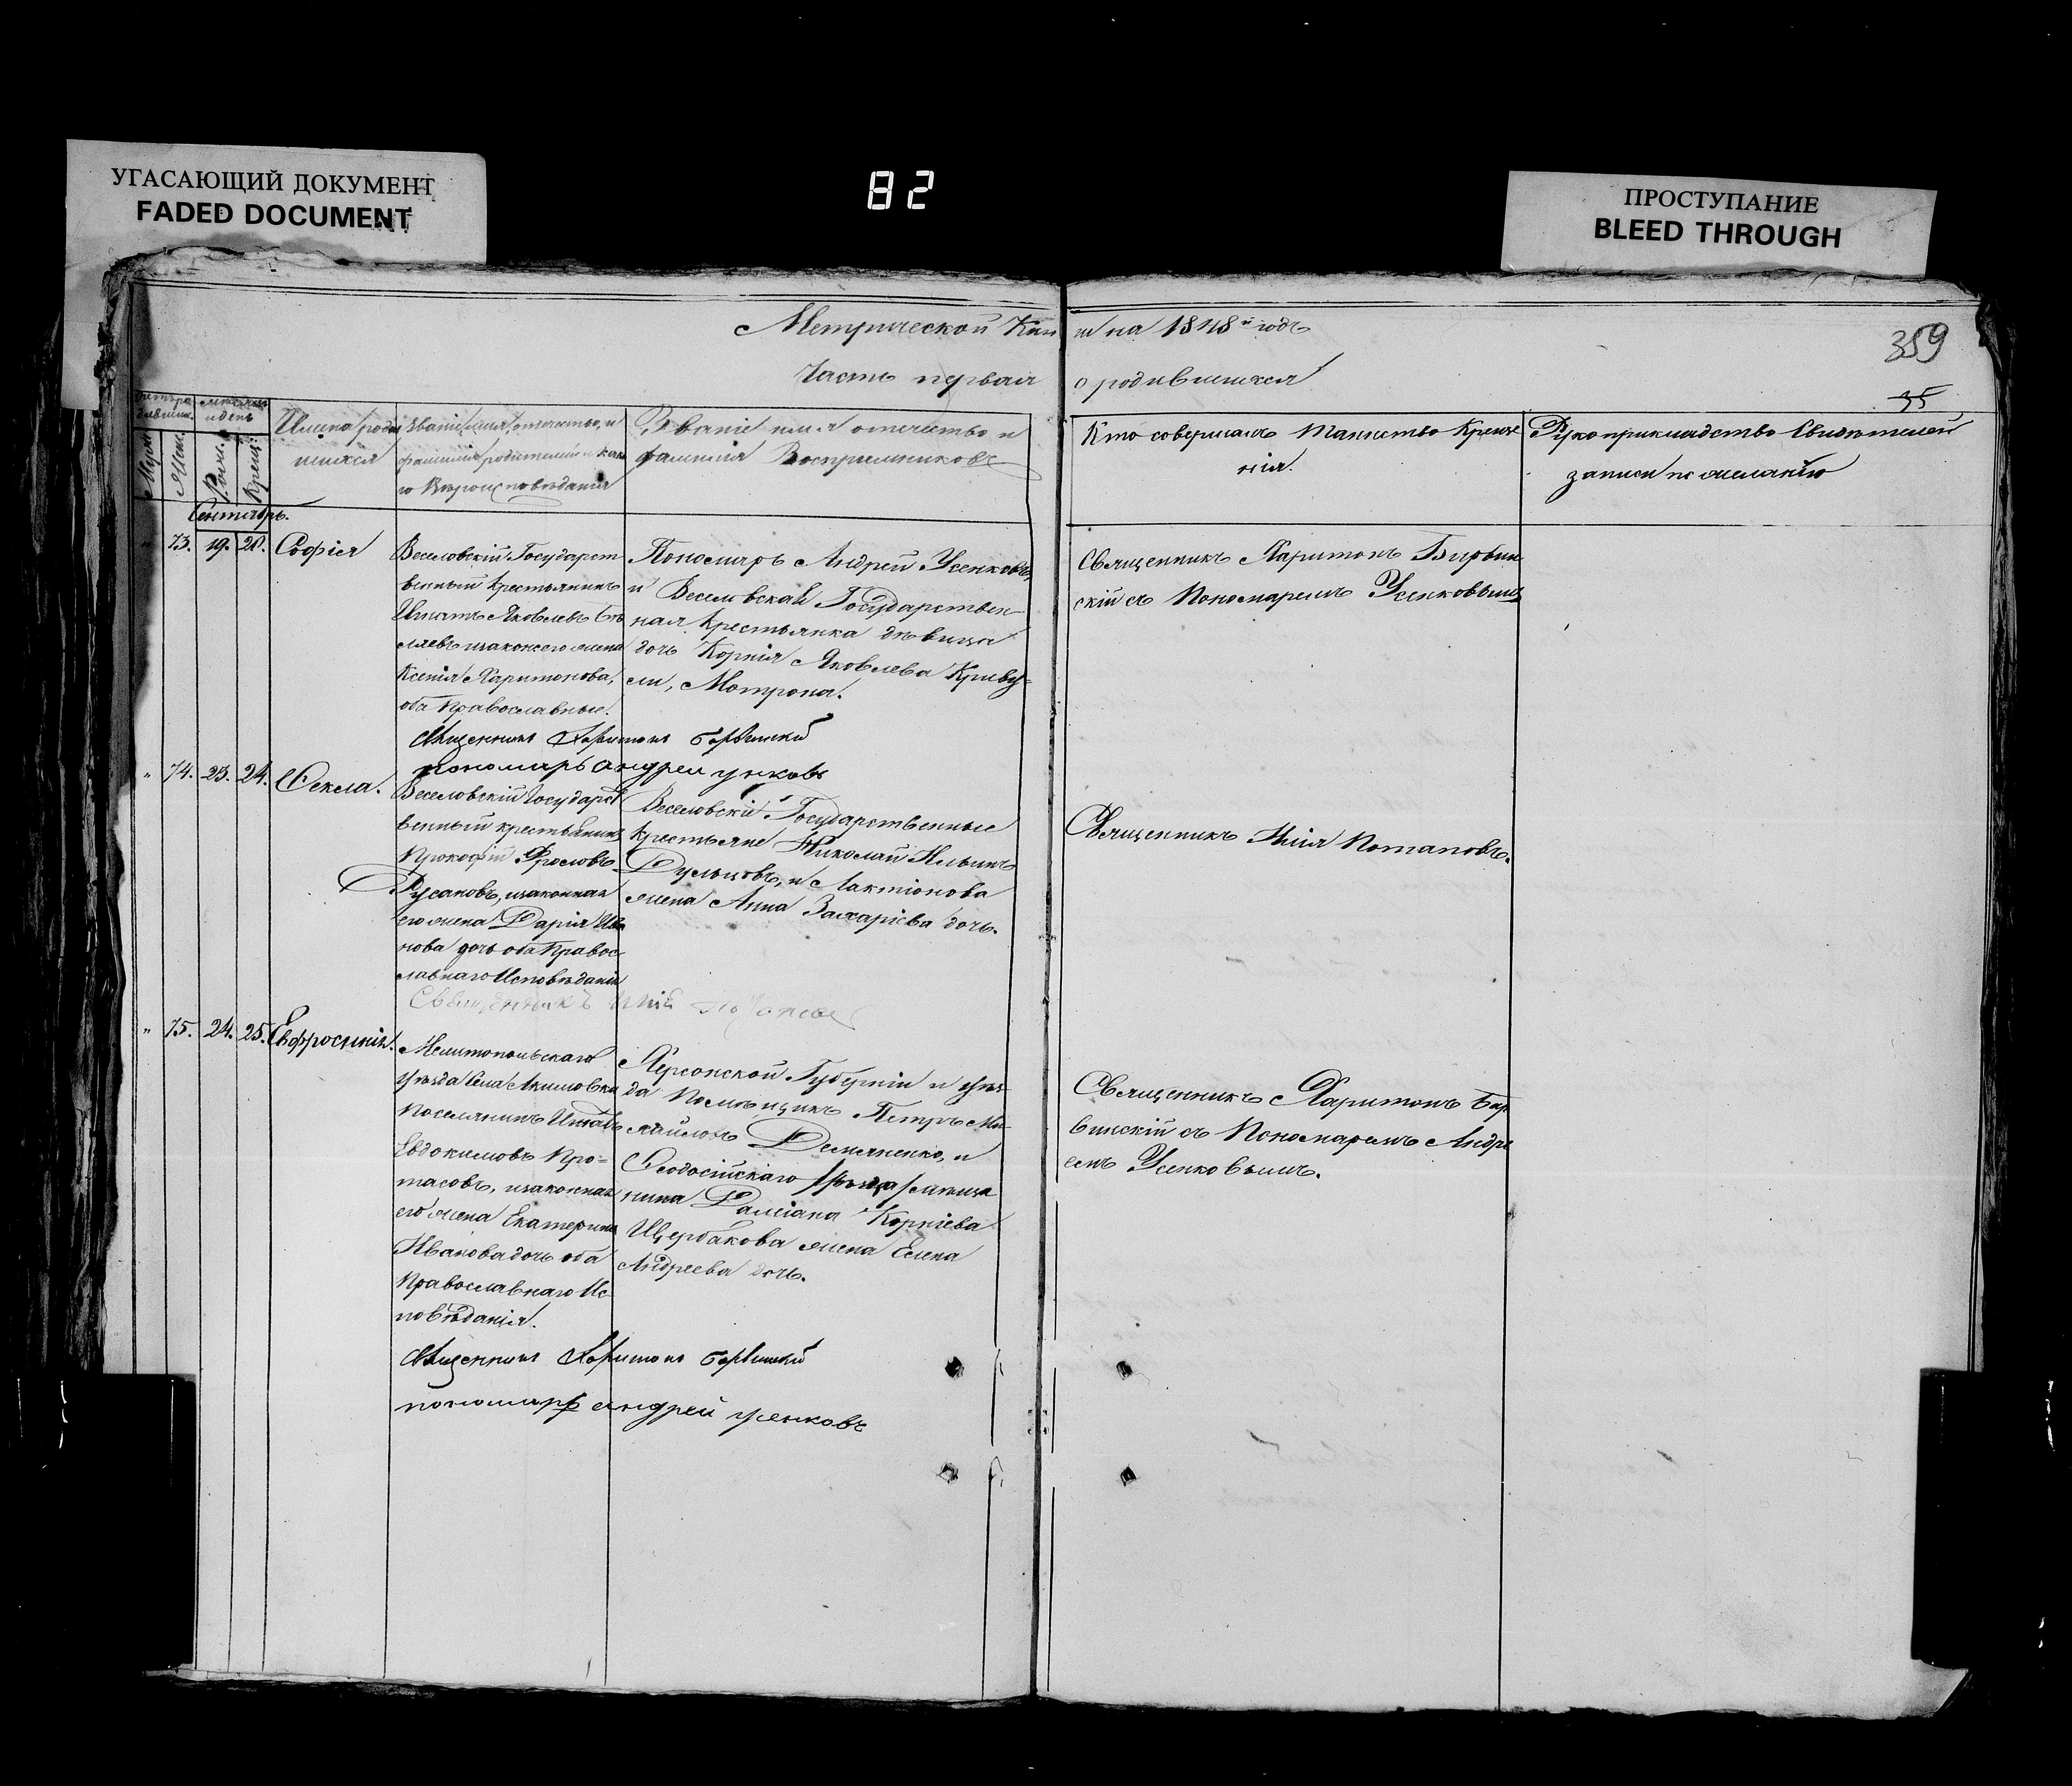 УГАСАЮЩИЙ ДОКУМЕНТ
FADED DOCUMENT
82
ПРОСТУПАНИЕ
BLEED THROUGH
Метрической Кни
ги на 1848й годъ
359
Часть первая
о родившихся
35
мѣсяцъ
и день
Имена роди
вшихся
Званіе, имя, отечество, и
фамилія родителей и како
го Вѣроисповѣданія
Званіе имя отечество и
фамилія Воспріемниковъ
Кто совершалъ Таинство Креще
нія.
Рукоприкладство Свидѣтелей
записи по желанію
Сентябрь.
" 73. 19. 20. Софія
Веселовскій Государст
венный Крестьянинъ
Игнатъ Яковлевъ Бѣ
ляевъ изаконая его жена
Ксенія Харитонова,
оба Православные.
Пономарь Андрей Усенковъ,
и Веселовская Государствен-
ная Крестьянка дѣвица
дочь Корнія Яковлева Криву-
ли, Мотрона.
Священникъ Харитонъ Барвин
скій съ Пономаремъ Усенковымъ
Священникъ Харитонъ Барвинскій
пономарь андреи унковъ
" 74. 23. 24. Ѳекла.
Веселовскій Государст
венный крестьянинъ
Прокофій Фроловъ
Русановъ, изаконная
его жена Дарія Ива
нова дочь оба Правос-
лавнаго Исповѣданія
Веселовскіе Государственные
Крестьяне Николай Ильинъ
Дульцовъ, и Лактіонова
жена Анна Захаріева дочь.
Священникъ Илія Потаповъ.
Священникъ Илія Потаповъ
" 75. 24. 25. Евфросинія.
Мелитопольскаго
уѣзда Села Акимовки
Поселянинъ Игнатъ
Евдокимовъ Про=
тасовъ, изаконная
его жена Екатерина
Иванова дочь оба
Православнаго Ис-
повѣданія.
Херсонской Губерніи и уѣз-
да Помѣщикъ Петръ Ми-
хайловъ Демяненко, и
Ѳеодосійскаго уѣзда мѣща
нина Даміана Корніева
Щербакова жена Елена
Андреева дочь.
Священникъ Харитонъ Бар
винскій съ Пономаремъ Андре
емъ Усенковымъ.
Священникъ Харитонъ Барвинскій
пономарь андрей усенковъ